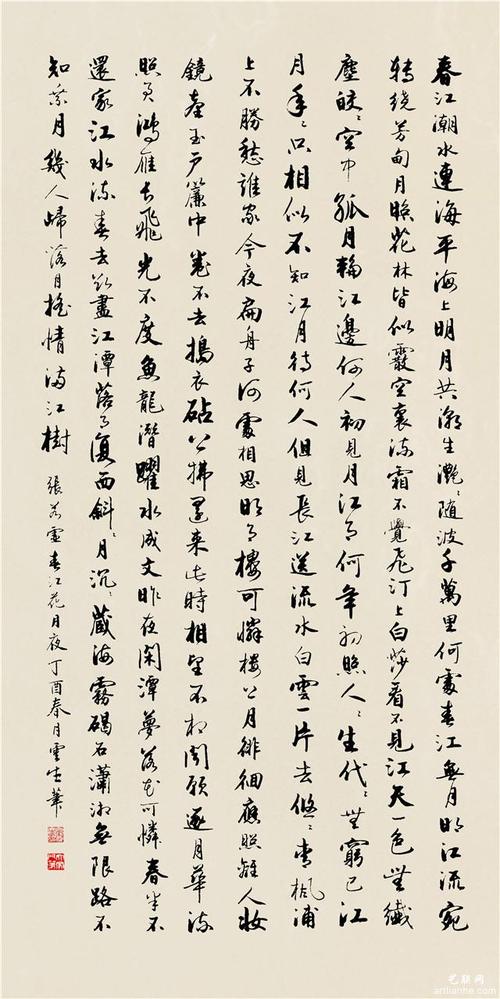 春江潮水連海平海上明月共潮生灧〻随波千萬里何處春江無月明江流宛
轉繞芳甸月照花林皆似霰空裏流霜不覺飛汀上白莎看不見江天一色無纖
塵皎〻空中孤月輪江邊何人初見月江月何年初照人〻生代〻無窮已江
月年〻只相似不知江月待何人但見長江送流水白雲一片去悠〻青楓浦
上不勝愁誰家今夜扁舟子何處相思明月樓可憐樓上月徘徊應照離人妝
鏡臺玉户簾中卷不去搗衣砧上拂還来此時相望不相聞願逐月華流
照君鴻雁長飛光不度魚龍潛躍水成文昨夜閑潭夢落花可憐春半不
還家江水流春去欲盡江潭落月復西斜〻月沉〻藏海霧碣石瀟湘無限路不
知乘月幾人歸落月搖情滿江樹
張若虛春江花月夜丁酉春月雲生筆
艺联网
artlianhe.com